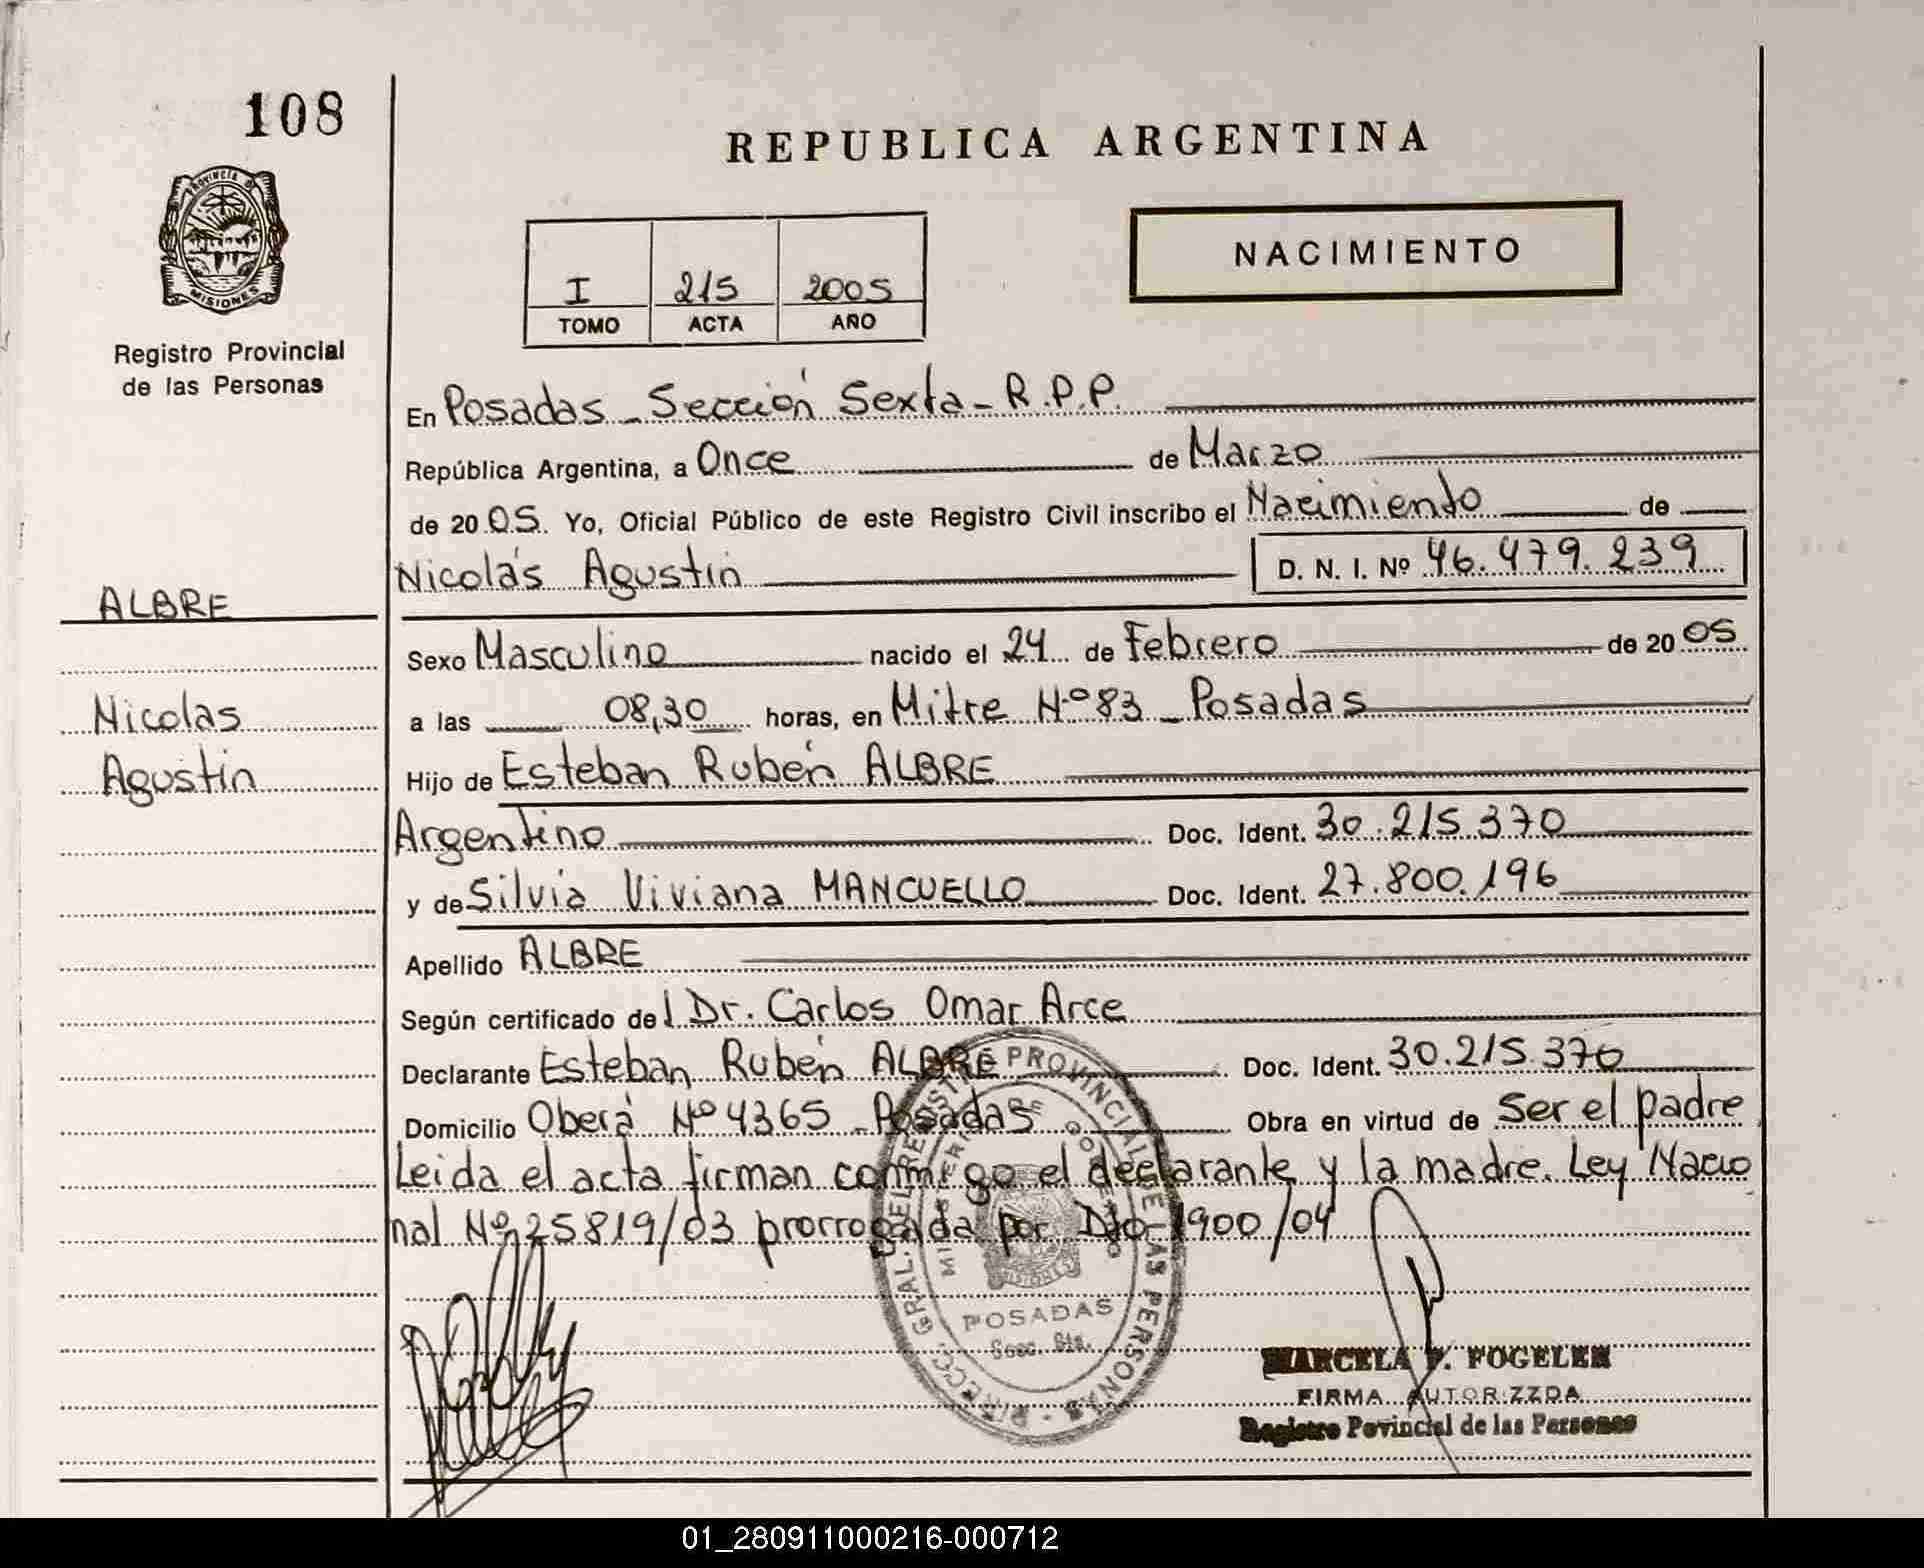 108
REPUBLICA ARGENTINA
PROVINCIA D
MISIONES
Registro Provincial
de las Personas
I 215 2005
TOMO ACTA AÑO
NACIMIENTO
En Posadas - Sección Sexta - R.P.P.
República Argentina, a Once de Marzo
de 20 05. Yo, Oficial Público de este Registro Civil inscribo el Nacimiento de
Nicolás Agustín D. N. I. Nº 46.479.239
ALBRE
Sexo Masculino nacido el 24 de Febrero de 20 05
Nicolas
a las 08,30 horas, en Mitre Nº 83 - Posadas
Agustín
Hijo de Esteban Rubén ALBRE
Argentino Doc. Ident. 30.215.370
y de Silvia Viviana MANCUELLO Doc. Ident. 27.800.196
Apellido ALBRE
Según certificado del Dr. Carlos Omar Arce
Declarante Esteban Rubén ALBRE Doc. Ident. 30.215.370
Domicilio Oberá Nº 4365 - Posadas Obra en virtud de ser el padre
Leida el acta firman conmigo el declarante y la madre. Ley Nacio
nal Nº 25819/03 prorrogada por Dto 1900/04
DIRECC. GRAL. DEL REGISTRO PROVINCIAL DE LAS PERSONAS
MINISTERIO DE GOBIERNO
MISIONES
POSADAS
Secc. 6ta.
MARCELA F. FOGELER
FIRMA AUTORIZZDA
Registro Povincial de las Personas
01_280911000216-000712